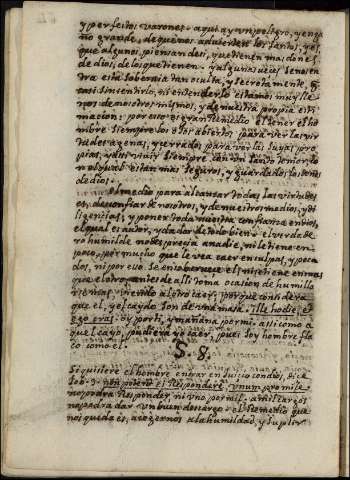 y perfectos varones: aqui ay un peligro, y enga
ño grande, de que nos advierten los santos, y es,
que algunos piensan de si, que tienen mas dones
de dios, de los que tienen: y algunas veces se nos en
tra esta sobervia tan oculta, y secretamente, q
casi sin sentirlo, ni entenderlo estamos muy lle
nos de nosotros mismos, y de nuestra propia esti
macion: por esso es gran remedio el tener el ho
mbre siempre los ojos abiertos para ver las vir
tudes agenas, y cerrados para ver las suyas pro
pias, y assi vivir siempre con un santo temor, co
no qual estan mas seguros, y guardados los dones
de dios.
El medio para alcanzar todas las virtudes
es, desconfiar de nosotros, y de nuestros medios, y di
ligencias, y poner toda nuestra confianza en dios,
el qual es autor, y dador de todo bien: el verdade
ro humilde no desprecia a nadie, ni le tiene en
poco, por mucho que le vea caer en culpas, y peca
dos, ni por eso se ensobervece el, ni se tiene en mas
que el otro, antes de alli toma ocasion de humilla
rse mas, viendo al otro caer, porque considera
que el, y el caydo son de una masa. Ille hodie, et
ego cras: oy por ti, y mañana por mi. assi como a
quel cayó, pudiera yo caer, pues soy hombre fla
co como el.
§. 8.
Si quisiere el hombre entrar en juicio con dios, dice
Job: 9. non poterit ei respondere unum pro mille
no podra responder, ni uno por mil: a mil cargos
no podra dar un buen descargo: el remedio que
nos queda es, acogernos a la humildad, y suplir